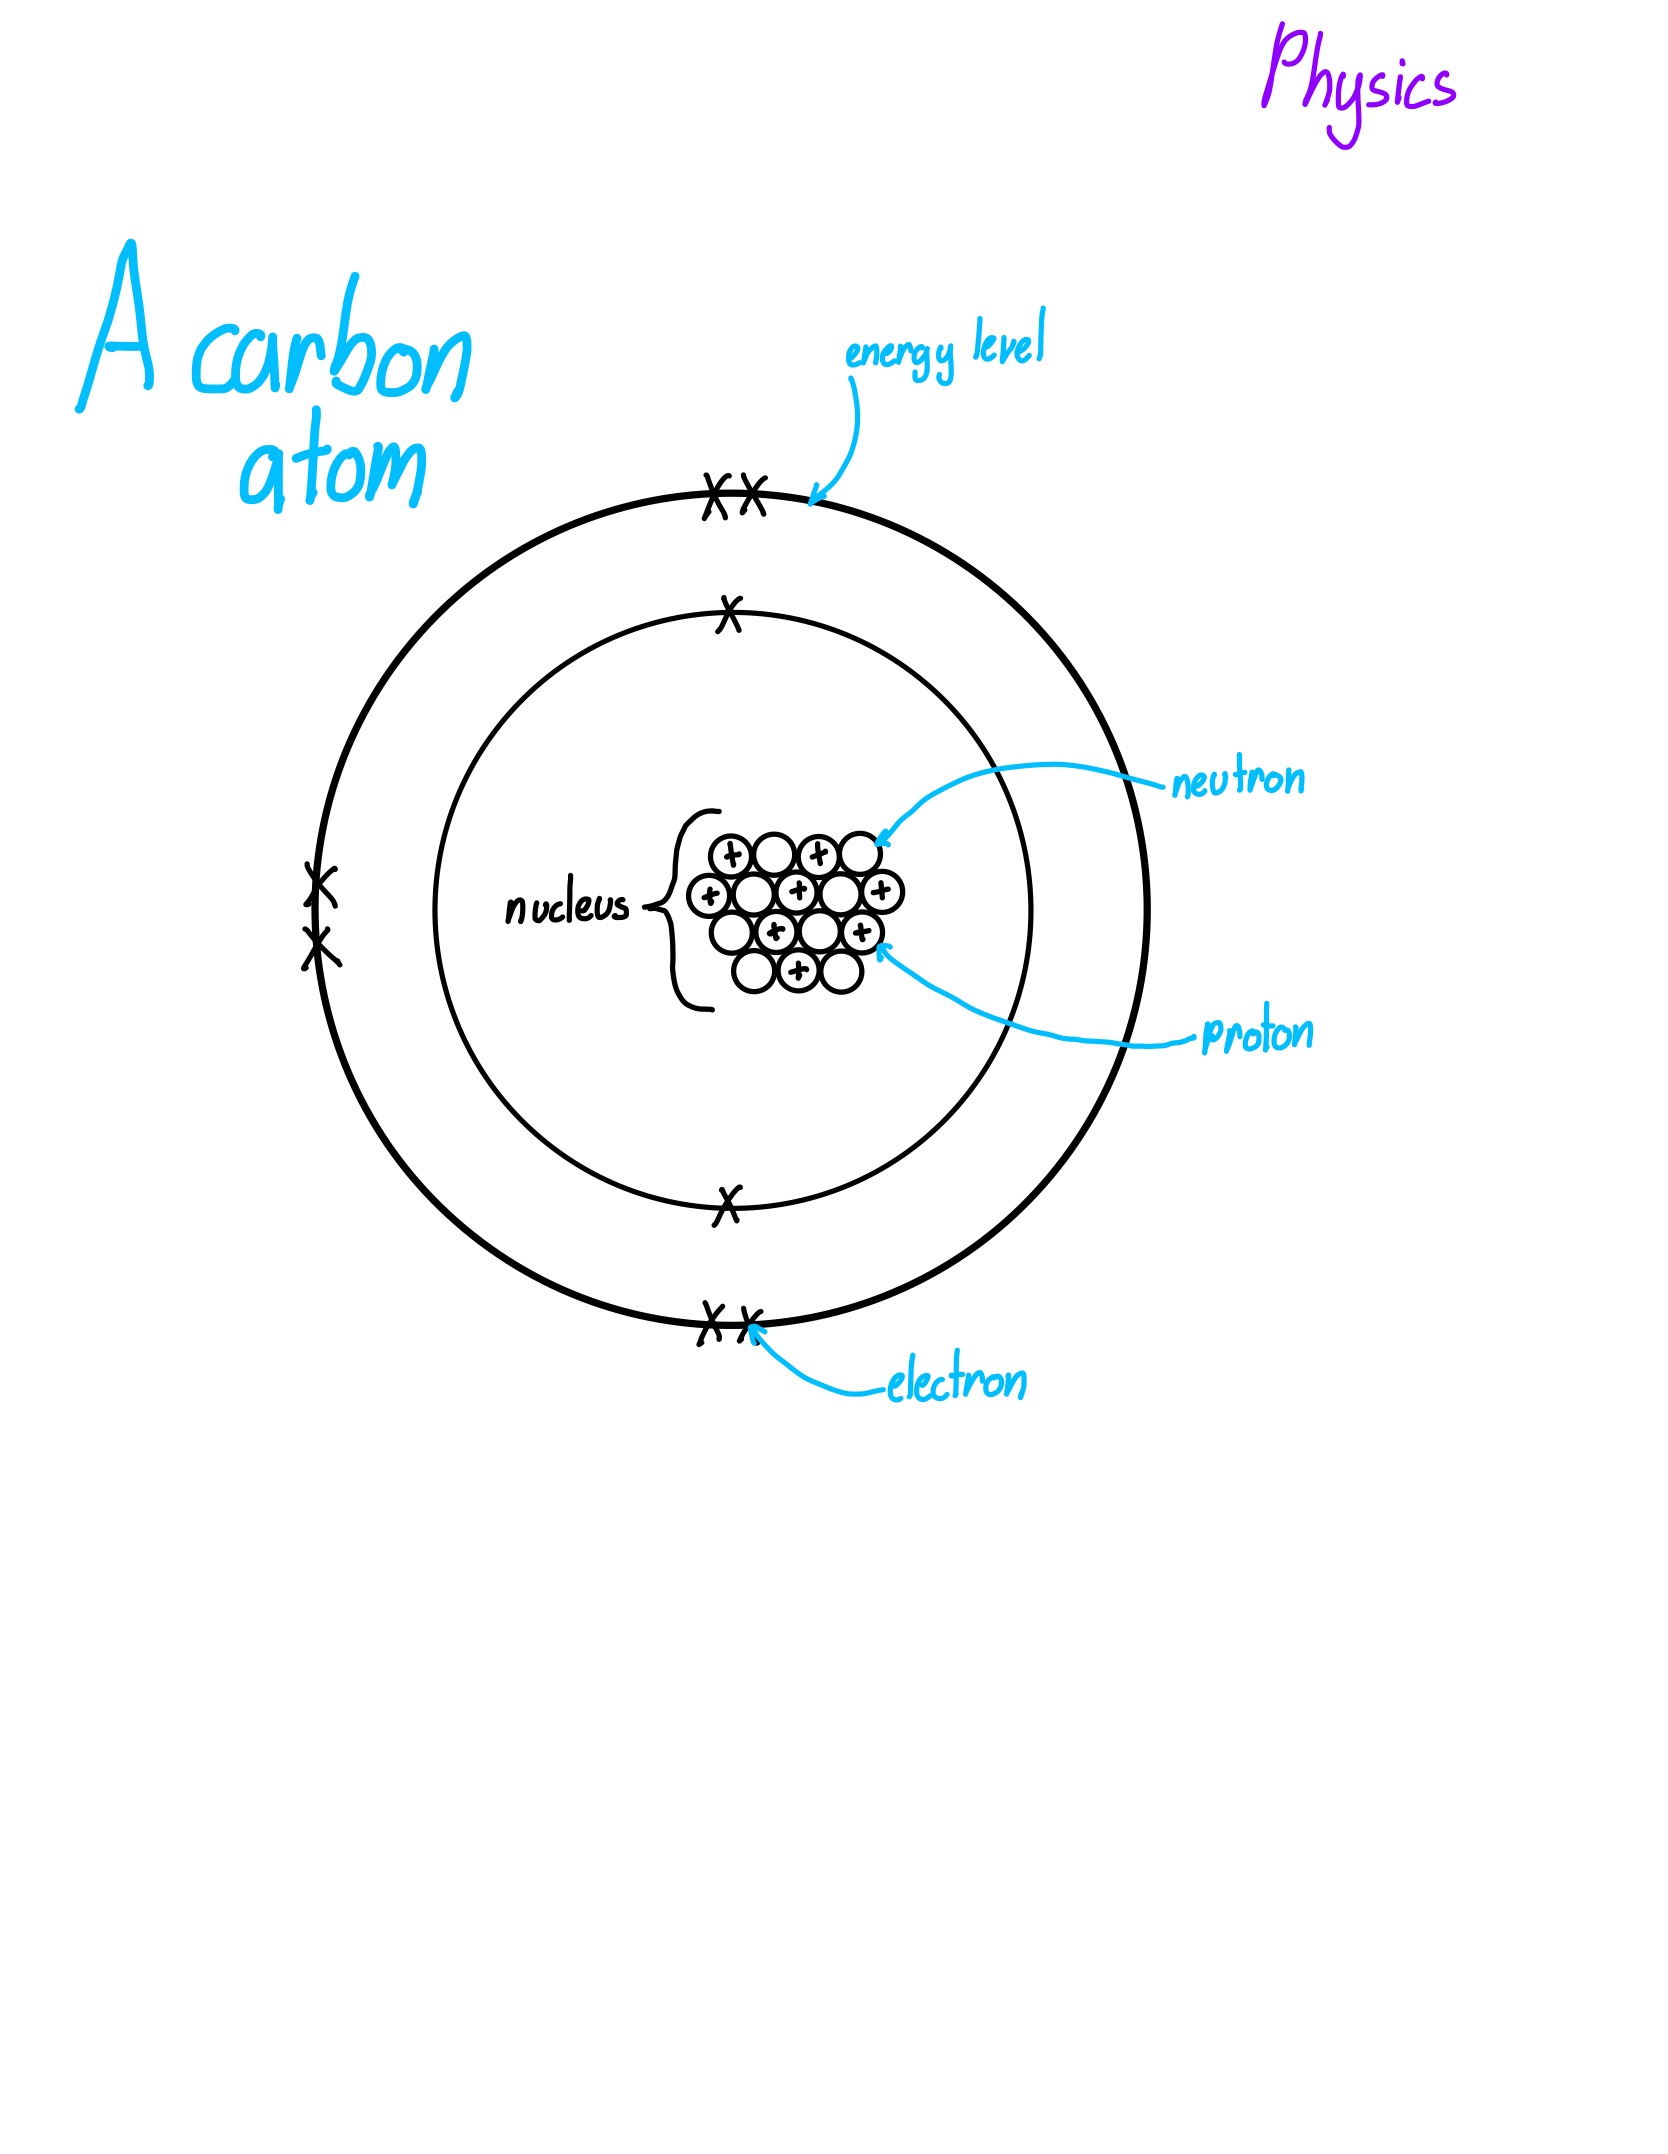 Physics
A carbon
atom
energy level
neutron
+ +
nucleus
+ + +
+ +
+
proton
electron